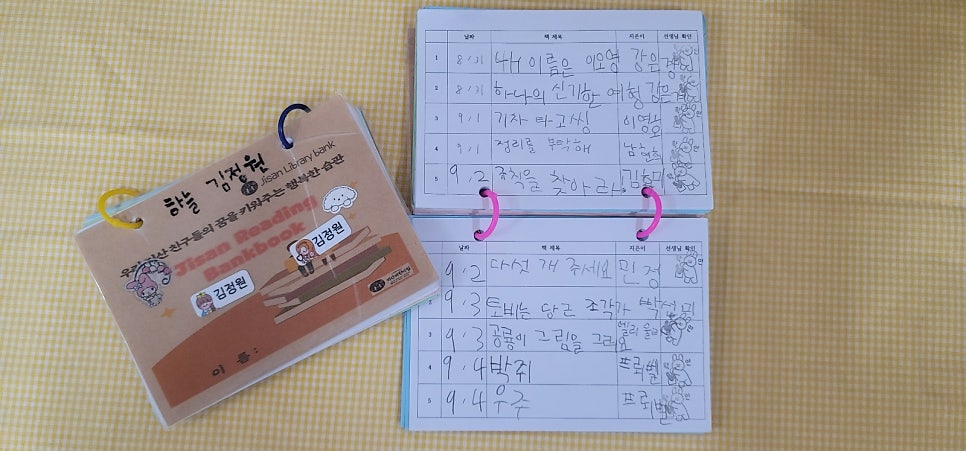 하늘 김정원
Jisan Library bank
우리 지산 친구들의 꿈을 키워주는 행복한 습관
Jisan Reading
Bankbook
김정원
김정원
이 름 :
날짜 책 제목 지은이 선생님 확인
1 8/31 내 이름은 이오영 강은경
2 8/31 하나의 신기한 여행 강은경
3 9/1 기차 타고 씽 이영
4 9/1 정리를 부탁해 남현희
5 9.2 규칙을 찾아라 김효미
날짜 책 제목 지은이 선생님 확인
9.2 다섯 개 주세요 민정
2 9.3 토비는 당근 조각가 박성미
3 9.3 공룡이 그림을 그려요 엘리 울리
4 9.4 박쥐 프뢰벨
5 9.4 우주 프뢰벨